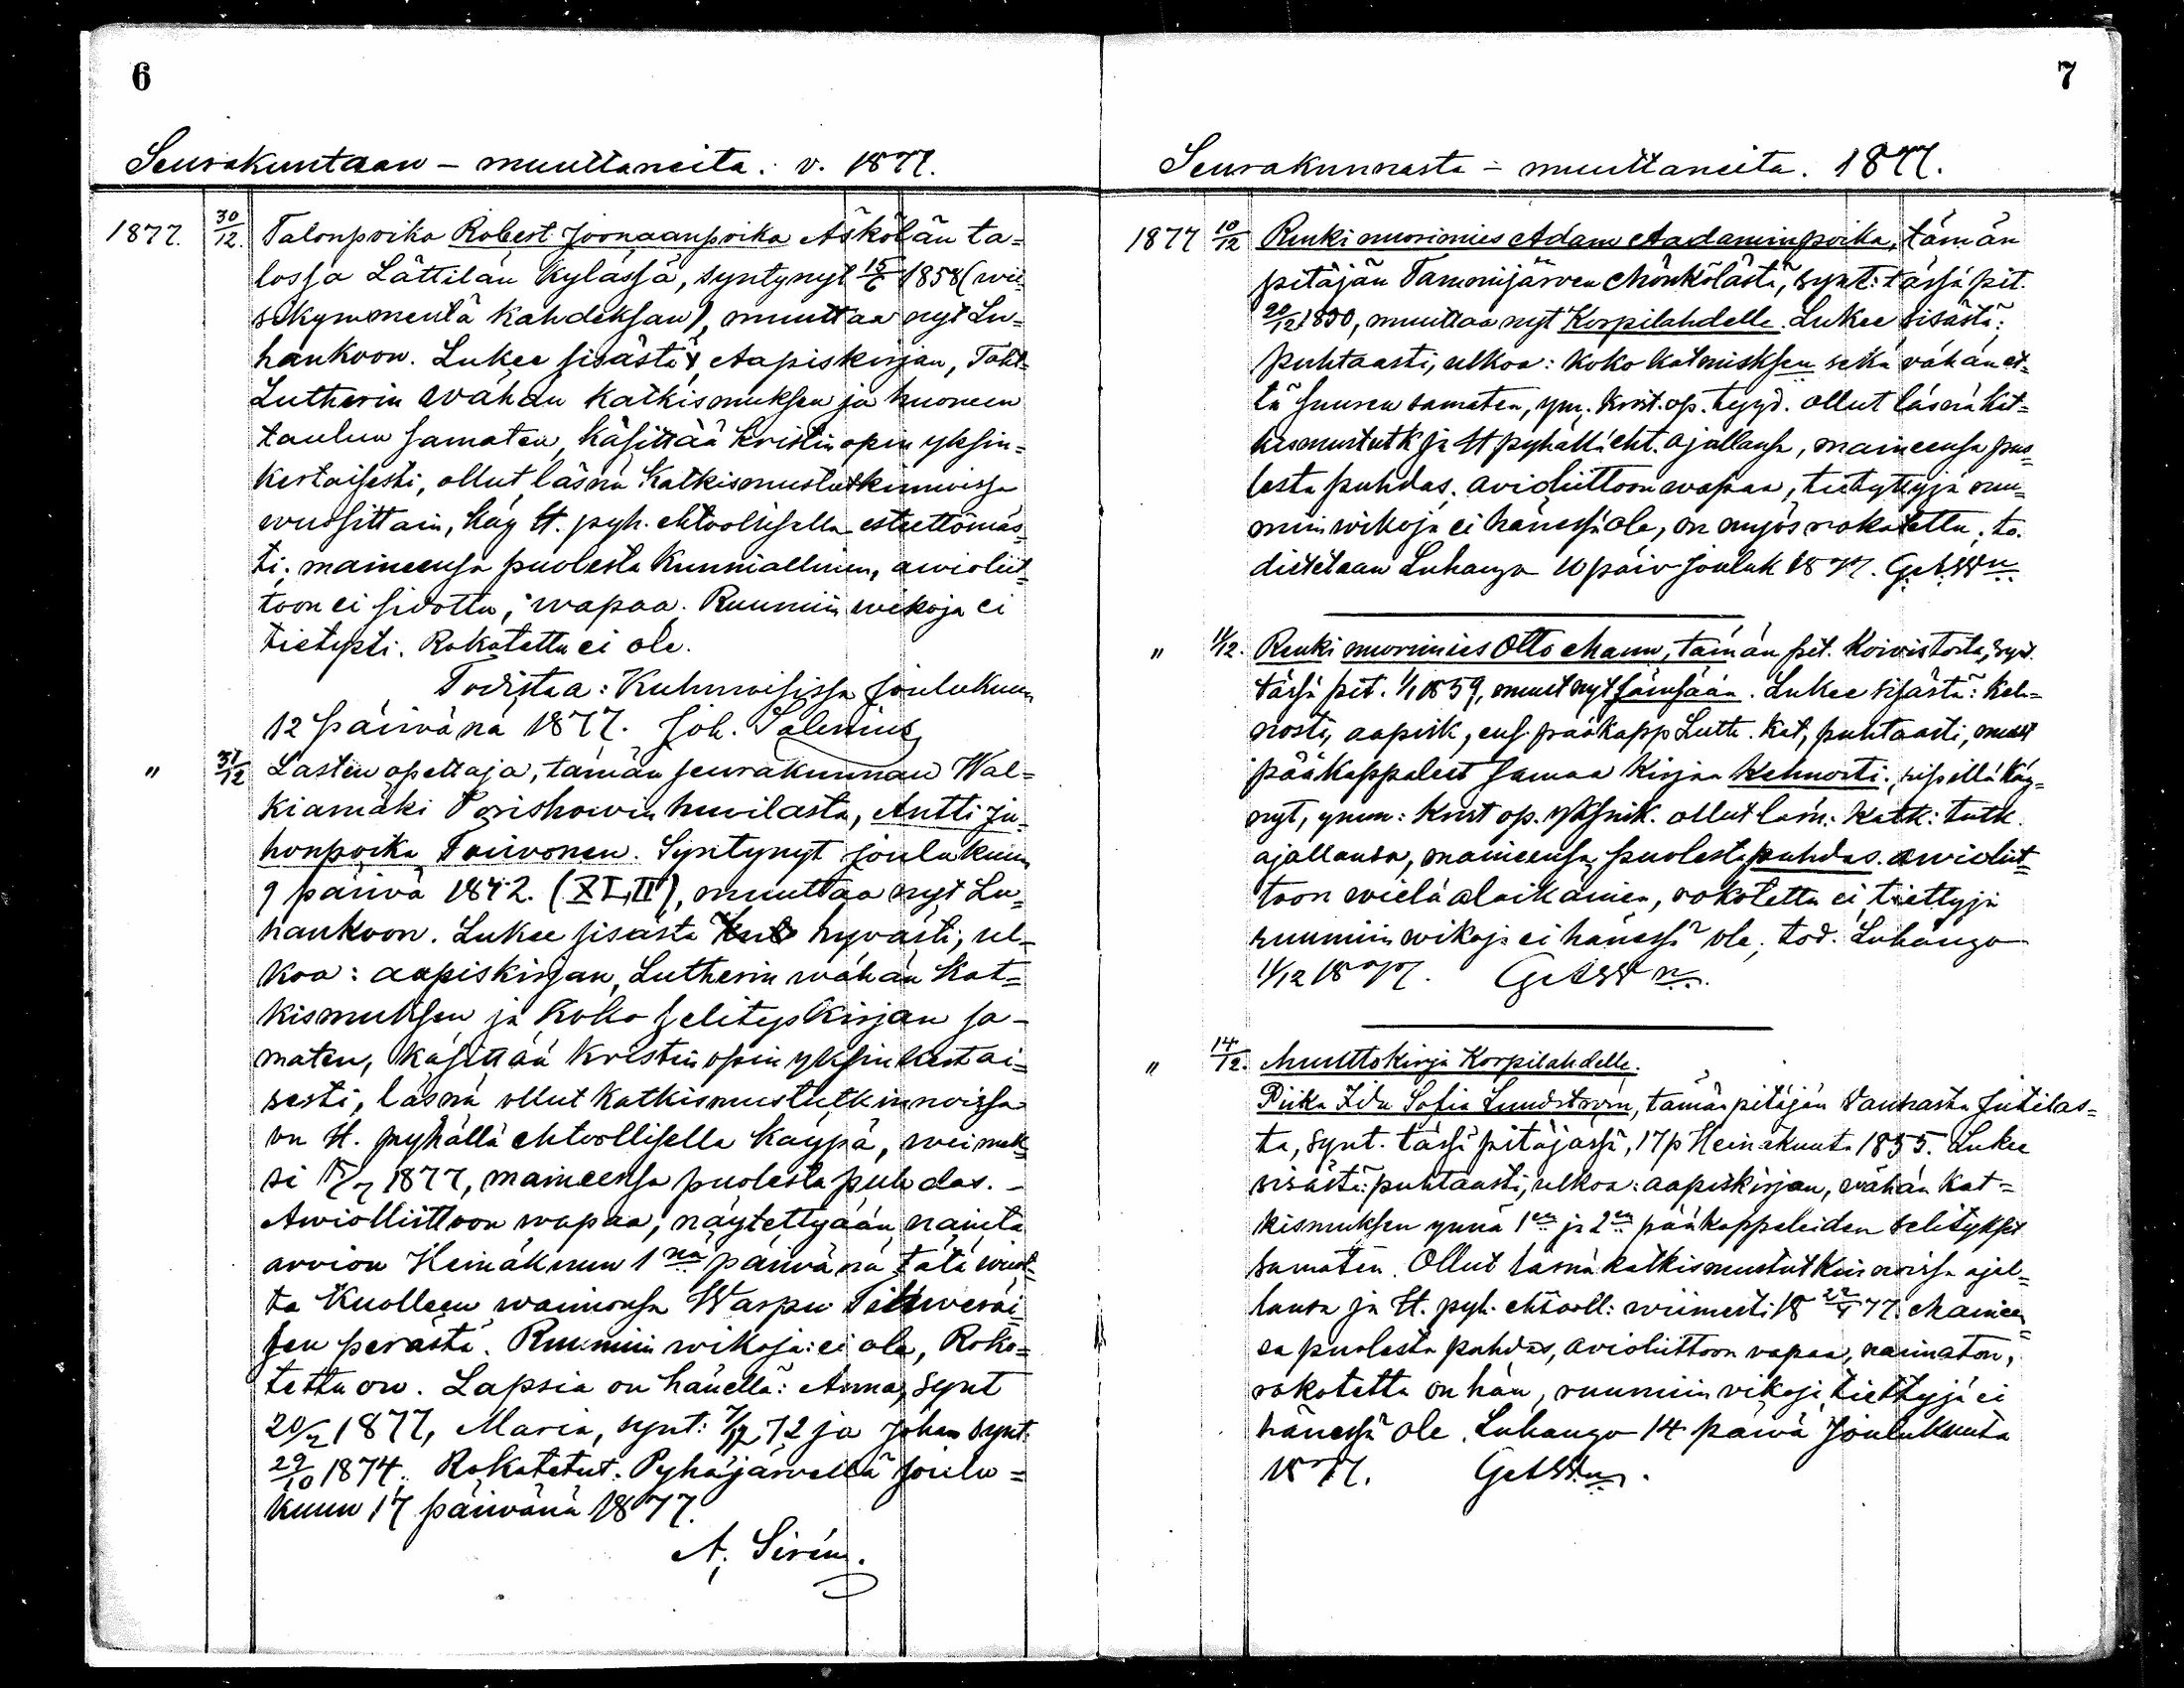 6
Seurakuntaan - muuttaneita. v. 1877.
1877. 30/12. Talonpoika Robert Joonaanpoika Äskölän ta=
lossa Lättilän kylässä, syntynyt 15/6 1858 (wii=
sikymmentä kahdeksan), muuttaa nyt Lu=
hankoon. Lukee sisästä, Aapiskirjan, Toht=
Lutherin wähän katkismuksen ja huoneen
taulun samaten, käsittää kristin opin yksin=
kertaisesti, ollut läsnä Katkismustutkinnoissa
wuosittain, käy H. pyh. ehtoolisella esteettömäs=
ti; maineensa puolesta kunniallinen, awioliit=
toon ei sidottu, wapaa. Ruumiin wikoja ei
tietysti. Rokotettu ei ole.
Todistaa: Kuhmoisissa Joulukuun
12 päivänä 1877. Joh. Salenius
" 31/12 Lasten opettaja, tämän seurakunnan Wal=
kiamäki huvilasta, Antti Ju=
honpoika Toivonen. Syntynyt joulukuun
9 päivä 1842. (XLII), muuttaa nyt Lu=
hankoon. Lukee sisästä hyvästi; ul=
koa: aapiskirjan, Lutherin wähän Kat=
kismuksen ja koko selityskirjan sa=
maten, käsittää kristin opin yksinkertai=
sesti, läsnä ollut katkismustutkinnoissa
on H. pyhällä ehtoollisella käypä, weimek=
si 1877, maineensa puolesta puhdas. -
Awioliittoon wapaa, näytettyään
arvion Heinäkuun 1 na päivänä tätä wuot=
ta kuolleen waimonsa Waspu
sen perästä. Ruumiin wikoja: ei ole, Roko=
tettu on. Lapsia on hänellä: Anna, synt
20/2 1877, Maria, synt: 72 ja Johan synt:
29/10 1874. Rokotetut. Pyhäjärvellä Joulu=
kuun 17 päivänä 1877.
A. Sirén.
7
Seurakunnasta - muuttaneita. 1877.
1877 10/12 Renki nuorimies Adam Aadaminpoika, tämän
pitäjän Tammijärven Mönkölästä, synt: tässä pit.
20/12 1850, muuttaa nyt Korpilahdelle. Lukee sisästä:
puhtaasti, ulkoa: koko katmisksen sekä vähän et=
tä suuren samaten, ym. krist. op. tyyd. ollut läsnä kat=
kismustutk ja H pyhällä eht. ajallansa, maineensa puo=
lesta puhdas, avioliittoon wapaa, tiettyjä ruu=
miin wikoja ei hänessä ole, on myös rokotettu, to=
distetaan Luhanga 10 päiv Jouluk 1877.
" 11/12. Renki nuorimies Otto Manu, tämän pit. Koivistosta, synt.
tässä pit. 1/1 1859, muut nyt Jämsään. Lukee sisästä: keh=
nosti, aapisk, ens. pääkapp Luth. kat, puhtaasti, muut
pääkappaleet samaa kirjaa kehnosti, ripillä käy=
nyt, ymm: krist op. yksink. ollut läsn: katk: tutk.
ajallansa, maineensa puolesta puhdas. awioliit=
toon wielä alaikäinen, rokotettu ei, tiettyjä
ruumiin wikoja ei hänessä ole, tod. Luhanga
11/12 1877.
" 14/12. Muuttokirja Korpilahdelle.
Piika Ida Sofia Lundström, tämän pitäjän Jutilas=
ta, synt. tässä pitäjässä, 17 p Heinäkuuta 1855. Lukee
sisästä: puhtaasti, ulkoa: aapiskirjan, vähän Kat=
kismuksen ynnä 1 en ja 2 en pääkappaleiden selitykset
samaten. Ollut läsnä katkismustutkinnoissa ajal=
lansa ja H. pyh. ehtooll: wiimeksi 18 77. Mainee=
sa puolesta puhdas, avioliittoon vapaa, naimaton,
rokotettu on hän, ruumiin vikoja tiettyjä ei
hänessä ole. Luhanga 14 päivä Joulukuuta
1877.